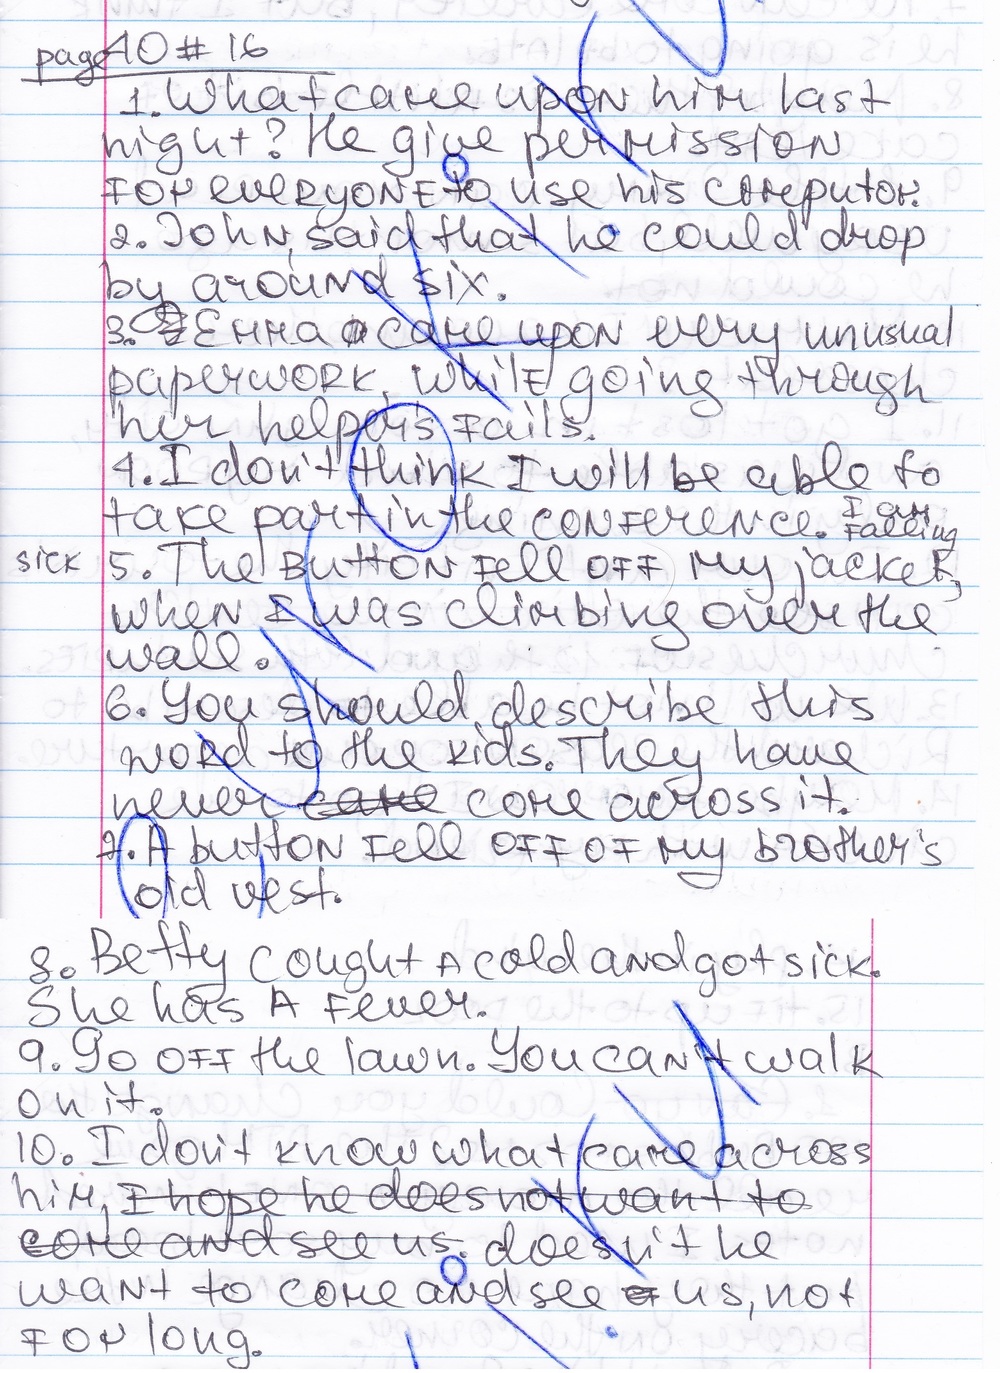 page 40 # 16
1. What came upon him last
night? He give permission
for everyone to use his computor.
2. John, said that he could drop
by around six.
3. Emma came upon every unusual
paperwork, while going through
her helper's fails.
4. I don't think I will be able to
take part in the conference. I am
falling
sick 5. The button fell off my jacket,
when I was climbing over the
wall.
6. You should describe this
word to the kids. They have
never came come across it.
7. A button fell off of my brother's
old vest.
8. Betty cought a cold and got sick.
She has a fever.
9. Go off the lawn. You can't walk
on it.
10. I don't know what came across
him, I hope he does not want to
come and see us. doesn't he
want to come and see us, not
for long.